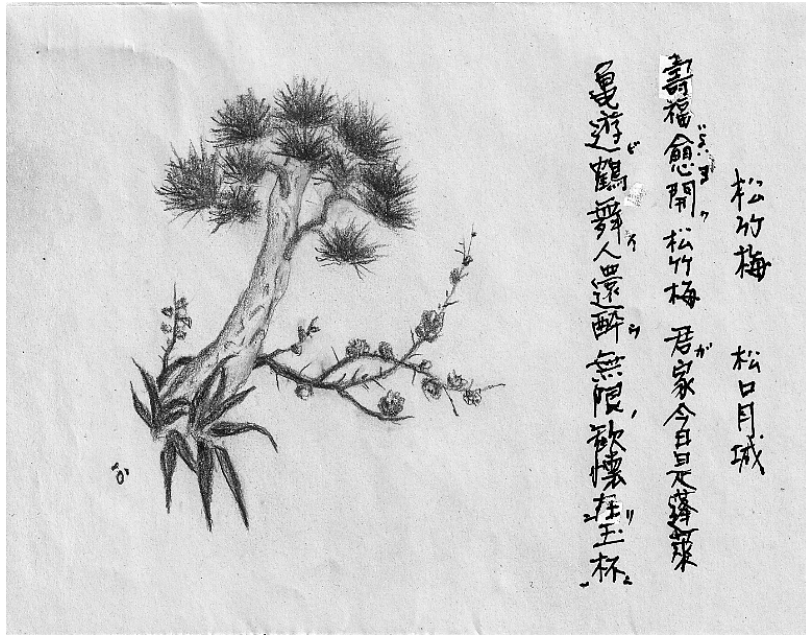 松竹梅 松口月城
壽福愈開ク松竹梅 君が家今日是蓬萊
亀遊び鶴舞イ人還酔ウ 無限ノ歓懐在リ玉杯ニ